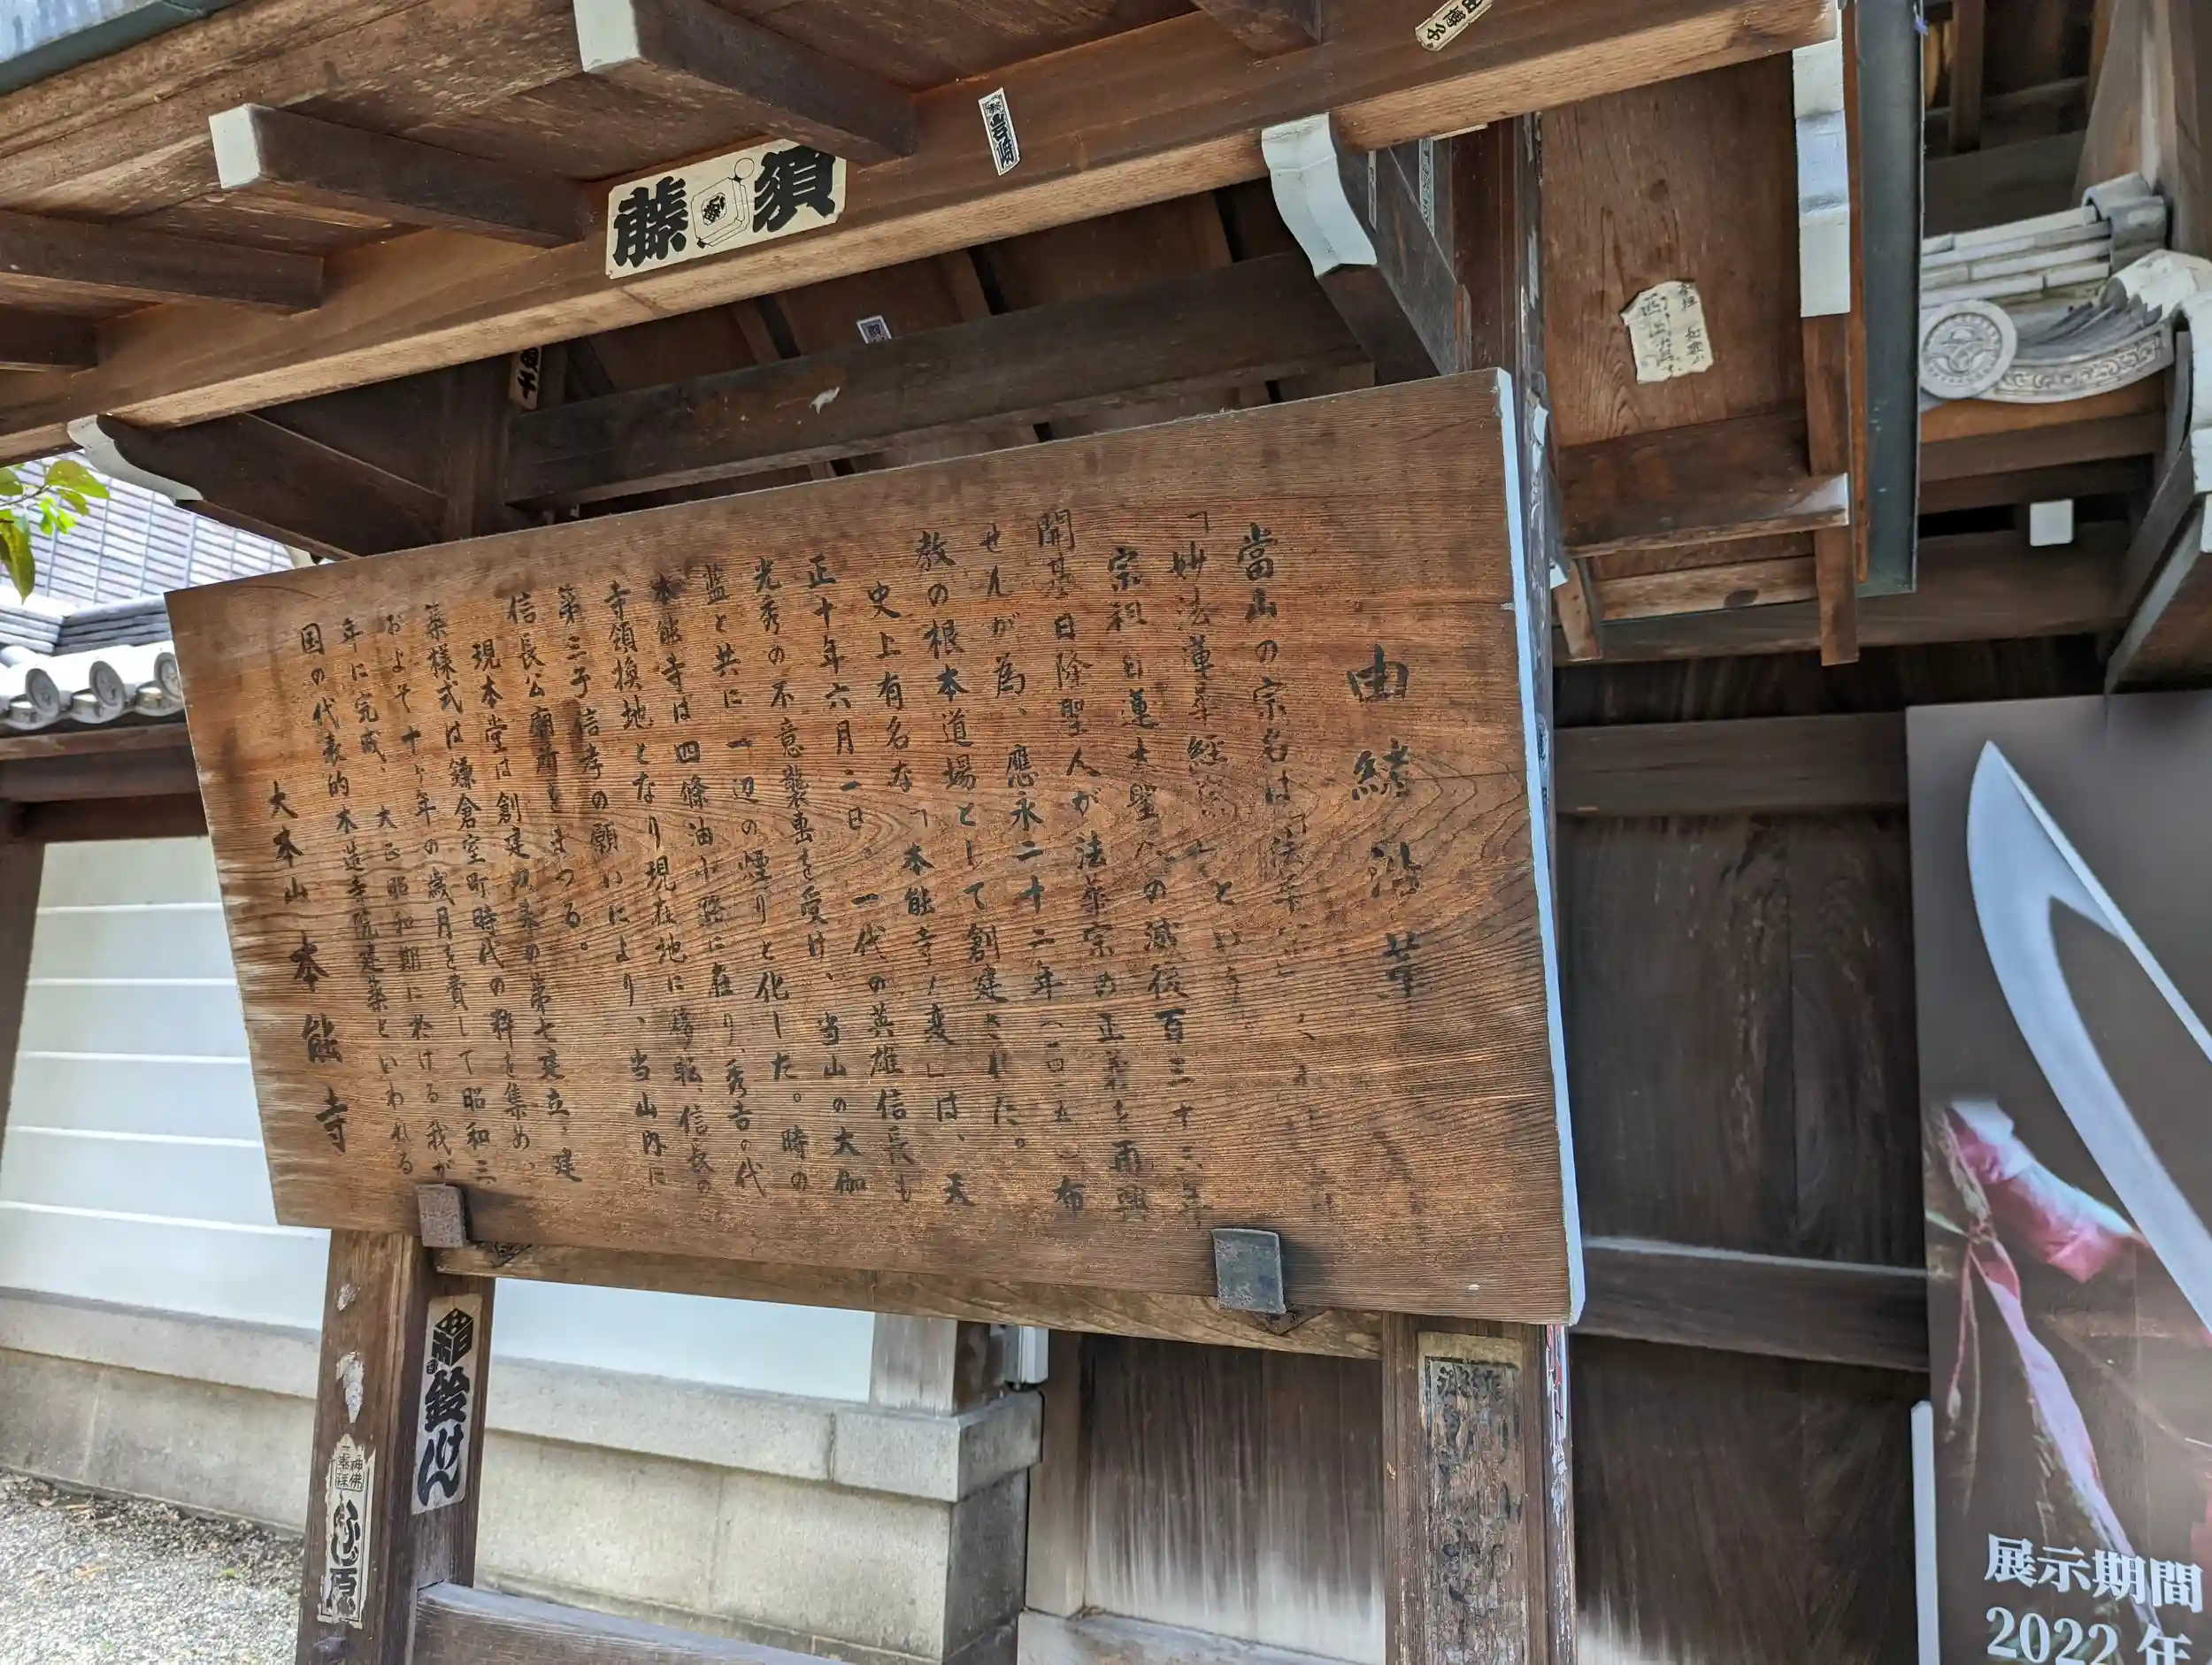 由緒沿革
當山の宗名は「法華宗」
「妙法蓮華経 といい
宗祖日蓮大聖人の滅後百三十三年
開基日隆聖人が法華宗の正義を再興
せんが為、應永二十二年(一四一五)布
教の根本道場として創建された。
史上有名な「本能寺ノ変」は、天
正十年六月二日、一代の英雄信長も
光秀の不意襲撃を受け、当山の大伽
藍と共に一辺の煙りと化した。時の
本能寺は四條油小路に在り、秀吉の代
寺領換地となり現在地に移転、信長の
第三子信孝の願いにより、当山内に
信長公廟所をまつる。
現本堂は創建以来の第七建立、建
築様式は鎌倉室町時代の粋を集め、
およそ十ヶ年の歳月を費して昭和三
年に完成、大正昭和期に於ける我が
国の代表的木造寺院建築といわれる
大本山 本能寺
須藤
岩崎
鈴けん
神佛
原
展示期間
2022年